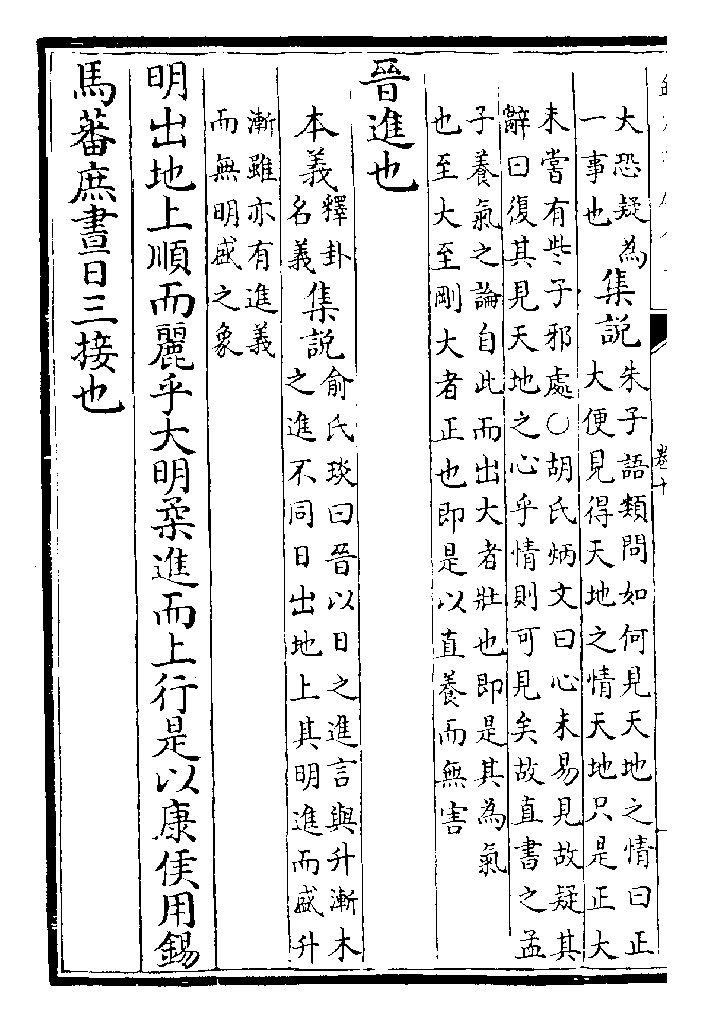 卷十
大恐疑為
一事也
集説
朱子語類問如何見天地之情曰正
大便見得天地之情天地只是正大
未嘗有些子邪處○胡氏炳文曰心未易見故疑其
辭曰復其見天地之心乎情則可見矣故直書之孟
子養氣之論自此而出大者壯也即是其為氣
也至大至剛大者正也即是以直養而無害
晉進也
本義
釋卦
名義
集説
俞氏琰曰晉以日之進言與升漸木
之進不同日出地上其明進而盛升
漸雖亦有進義
而無明盛之象
明出地上順而麗乎大明柔進而上行是以康侯用錫
馬蕃庶晝日三接也